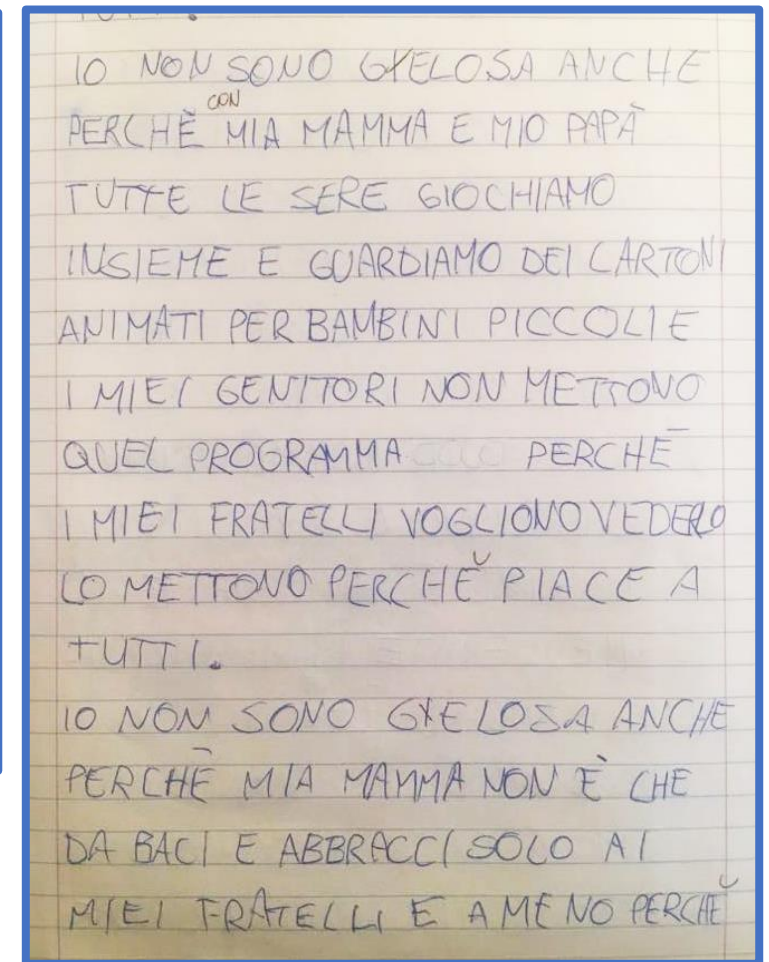 IO NON SONO GXELOSA ANCHE
CON
PERCHÈ MIA MAMMA E MIO PAPÀ
TUTTE LE SERE GIOCHIAMO
INSIEME E GUARDIAMO DEI CARTONI
ANIMATI PER BAMBINI PICCOLI E
I MIEI GENITORI NON METTONO
QUEL PROGRAMMA PERCHÈ
I MIEI FRATELLI VOGLIONO VEDERLO
LO METTONO PERCHÈ PIACE A
TUTTI.
IO NON SONO GXELOSA ANCHE
PERCHÈ MIA MAMMA NON È CHE
DA BACI E ABBRACCI SOLO AI
MIEI FRATELLI E A ME NO PERCHÈ